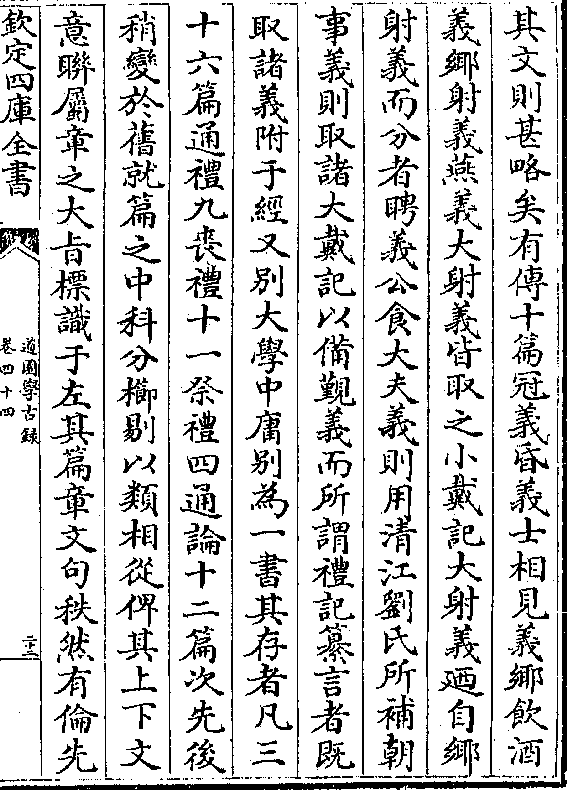 其文則甚略矣有傳十篇冠義昏義士相見義鄉飲酒
義鄉射義燕義大射義皆取之小戴記大射義廼自鄉
射義而分者聘義公食大夫義則用清江劉氏所補朝
事義則取諸大戴記以備覲義而所謂禮記纂言者既
取諸義附于經又别大學中庸别為一書其存者凡三
十六篇通禮九喪禮十一祭禮四通論十二篇次先後
稍變於舊就篇之中科分櫛剔以類相從俾其上下文
意聯屬章之大㫖標識于左其篇章文句秩然有倫先
欽定四庫全書
道園學古錄
卷四十四
二十三